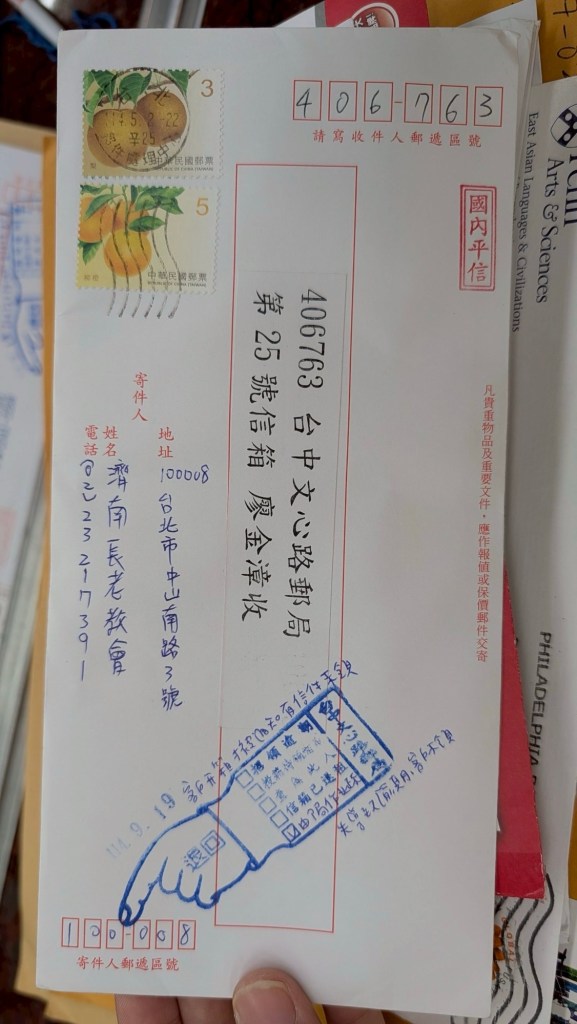 3
中華民國郵票
REPUBLIC OF CHINA (TAIWAN)
5
中華民國郵票
REPUBLIC OF CHINA (TAIWAN)
406-763
請寫收件人郵遞區號
國內平信
406763 台中文心路郵局
第 25 號信箱 廖金漳收
凡貴重物品及重要文件，應作報值或保價郵件交寄
寄件人
地址
100008
台北市中山南路3號
姓名
濟南長老教會
電話
(02)23217391
114.9.19
退回
招領逾期
信箱已退租
100-008
寄件人郵遞區號
Arts & Sciences
East Asian Languages & Civilizations
PHILADELPHIA